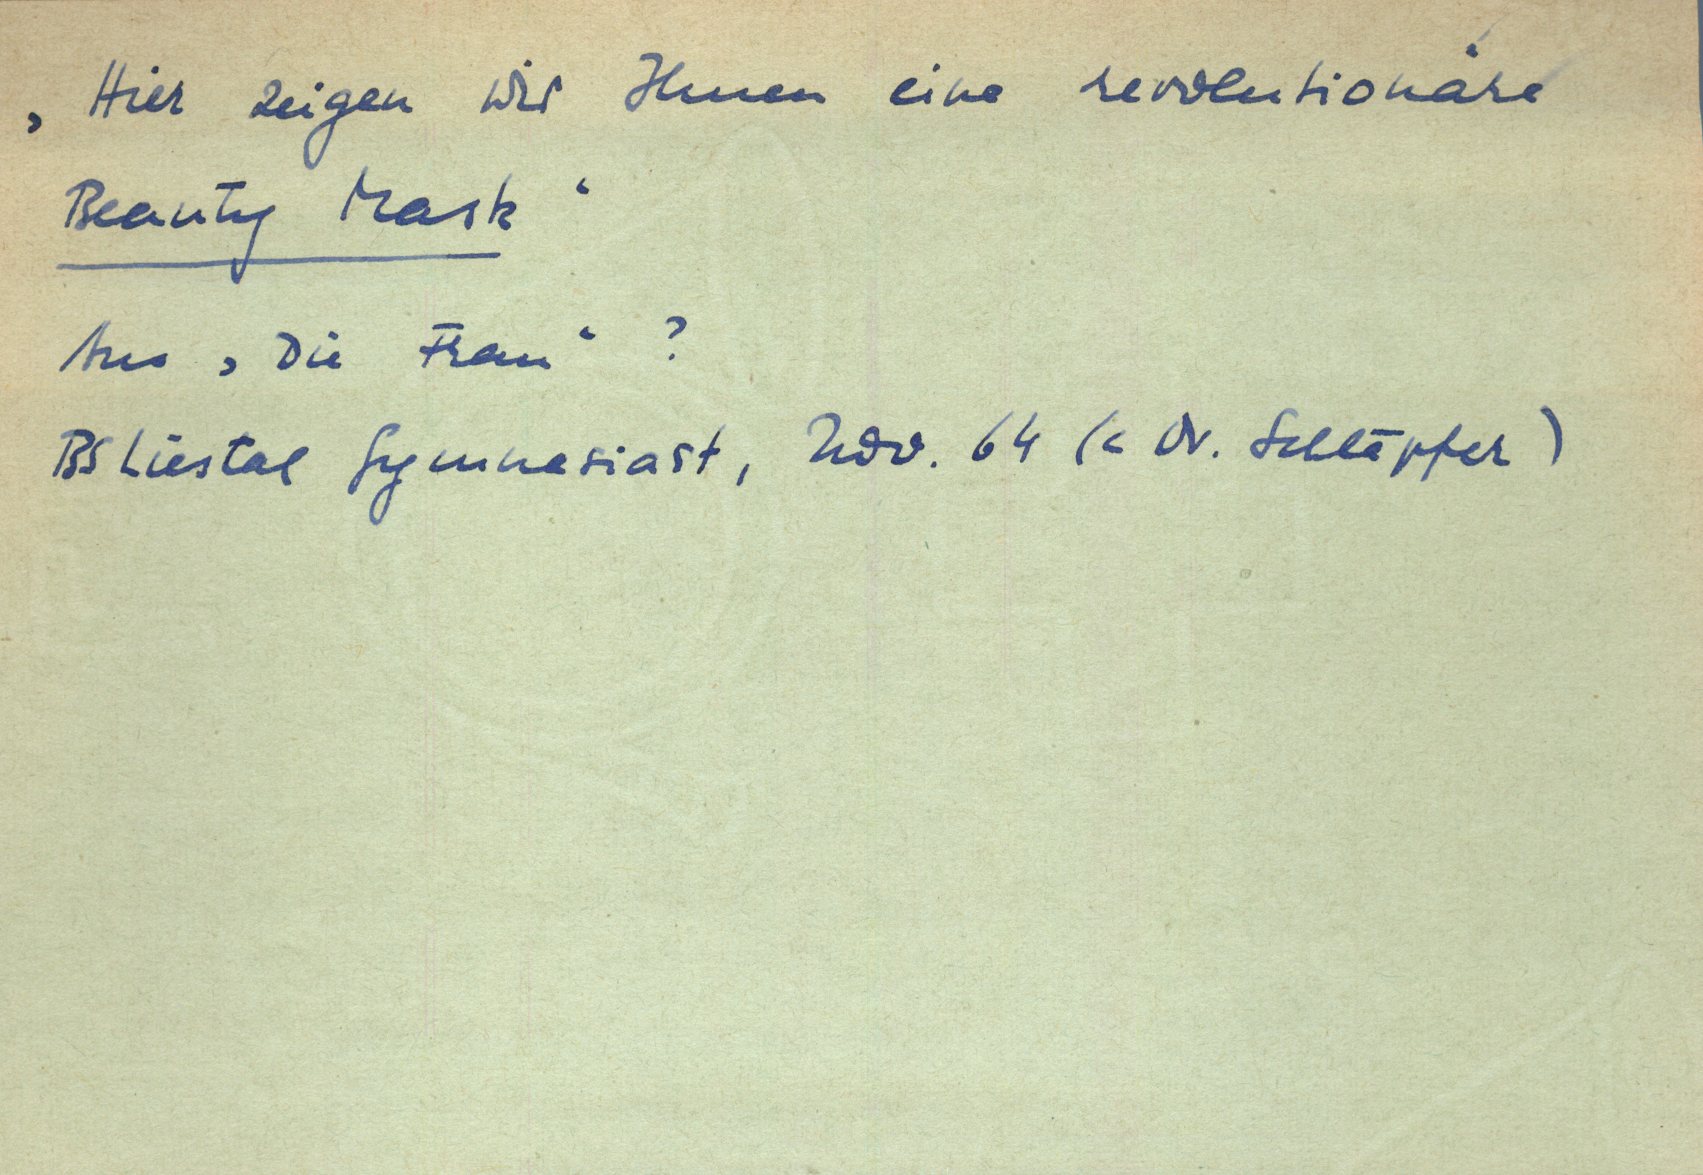 ‚Hier zeigen wir Ihnen eine revolutionäre
Beauty Mask‘
Aus ‚Die Frau‘ ?
BS Liestal Gymnasiast, Nov. 64 (< Dr. Schläpfer)